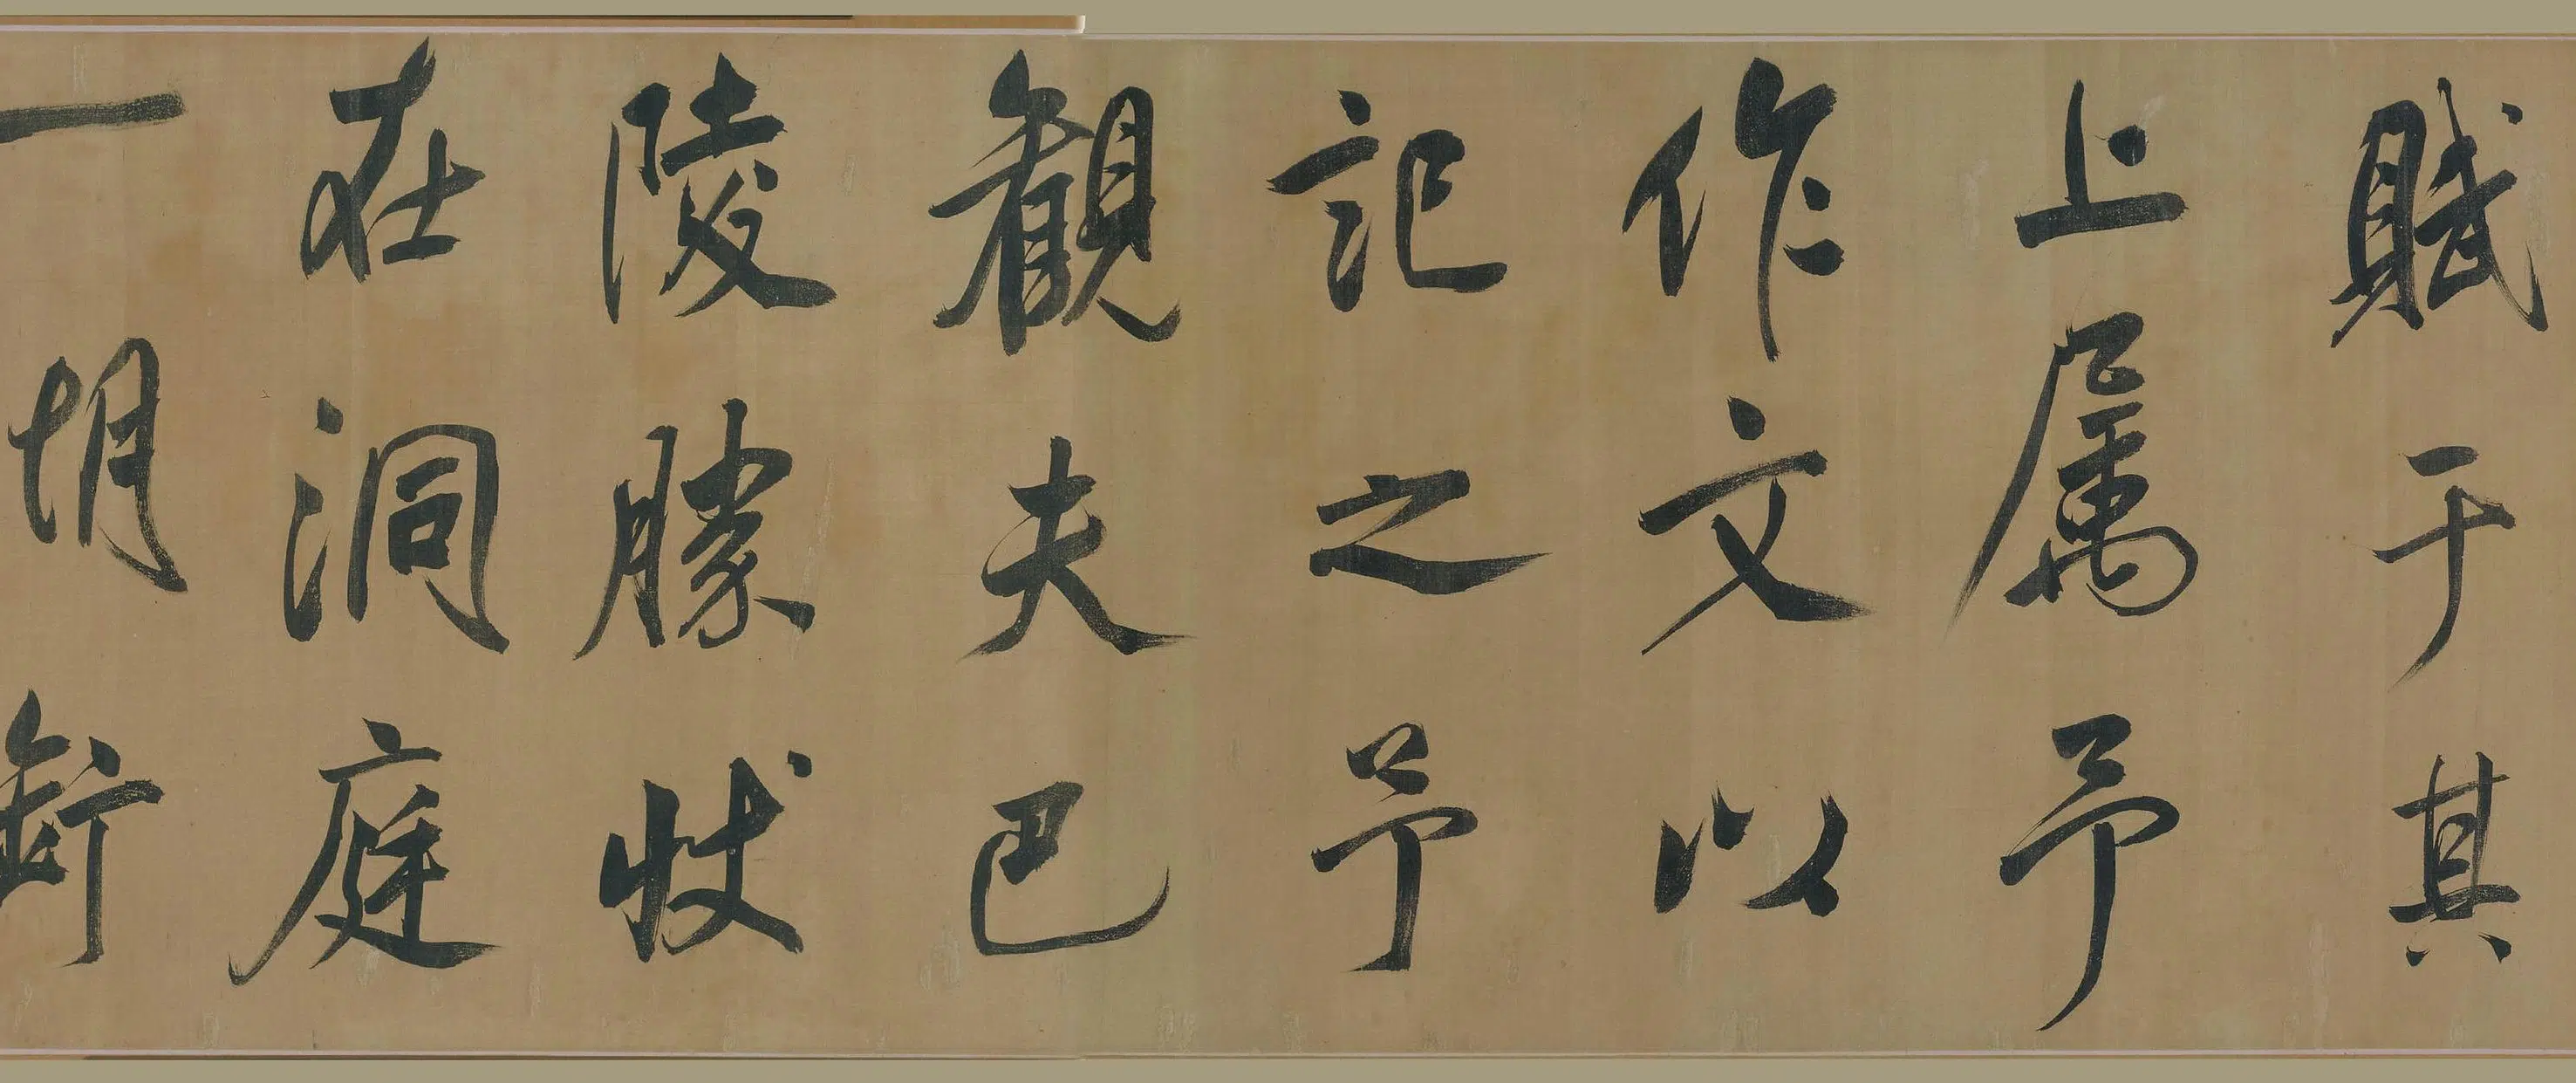 賦于其
上属予
作文以
記之予
觀夫巴
陵勝狀
在洞庭
一胡銜